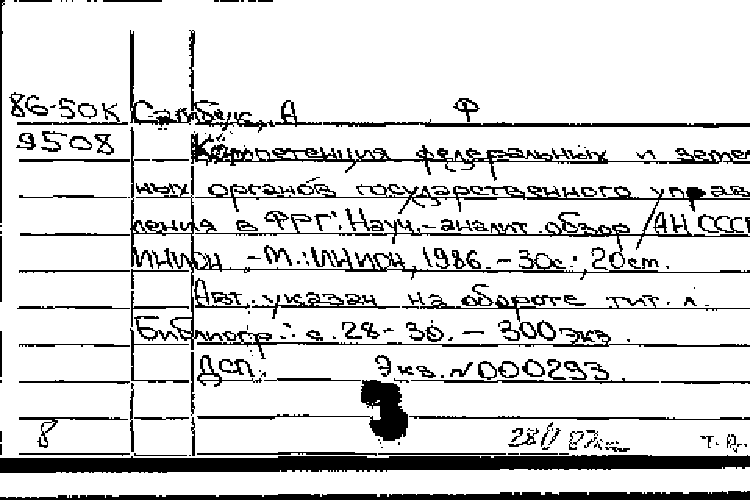 86-50К Самбук, А Ф
9508 Компетенция федеральных и земе
ных органов государственного управ
ления в ФРГ: Науч.-аналит. обзор / АН СССР
ИНИОН. - М.: ИНИОН, 1986. - 30с.; 20см.
Авт. указан на обороте тит. л.
Библиогр.: с. 28-30. - 300 экз.
ДСП. Экз. №000293.
8